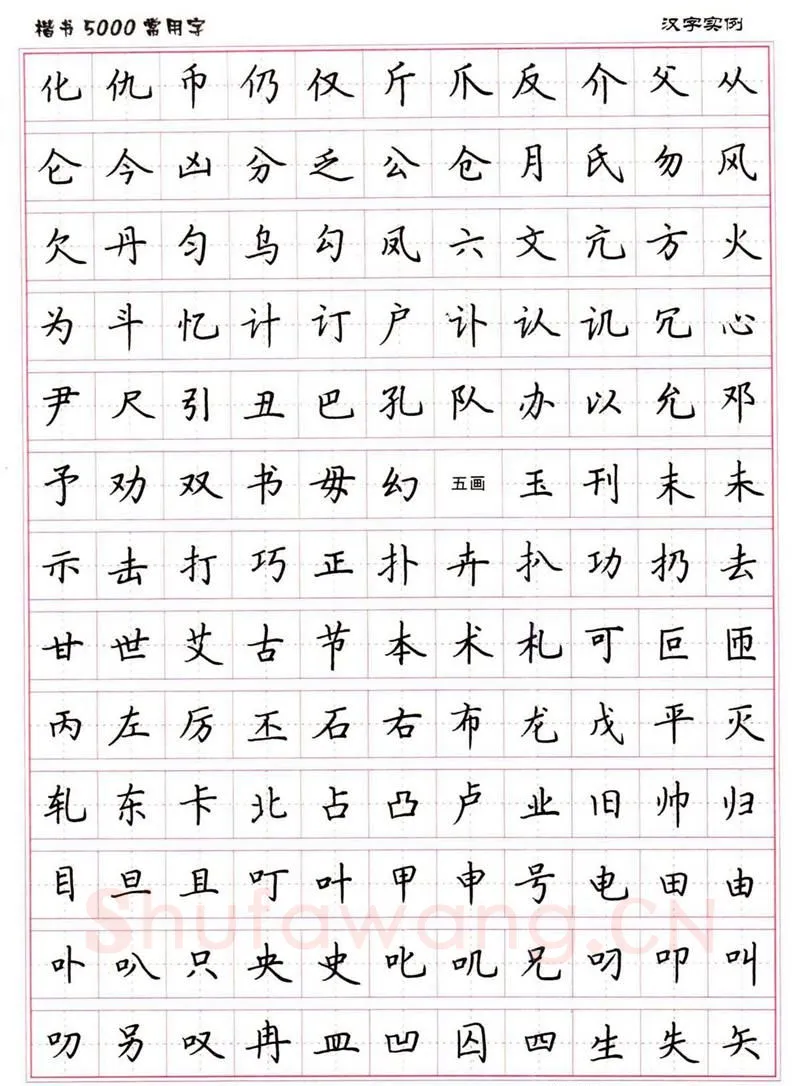 楷书5000常用字 汉字实例
化仇币仍仅斤爪反介父从
仑今凶分乏公仓月氏勿风
欠丹匀乌勾凤六文亢方火
为斗忆计订户讣认讥冗心
尹尺引丑巴孔队办以允邓
予劝双书毋幻五画玉刊末未
示击打巧正扑卉扒功扔去
甘世艾古节本术札可叵匝
丙左厉丕石右布龙戊平灭
轧东卡北占凸卢业旧帅归
目旦且叮叶甲申号电田由
卟叭只央史叱叽兄叼叩叫
叻另叹冉皿凹囚四生失矢
Shufawang.CN